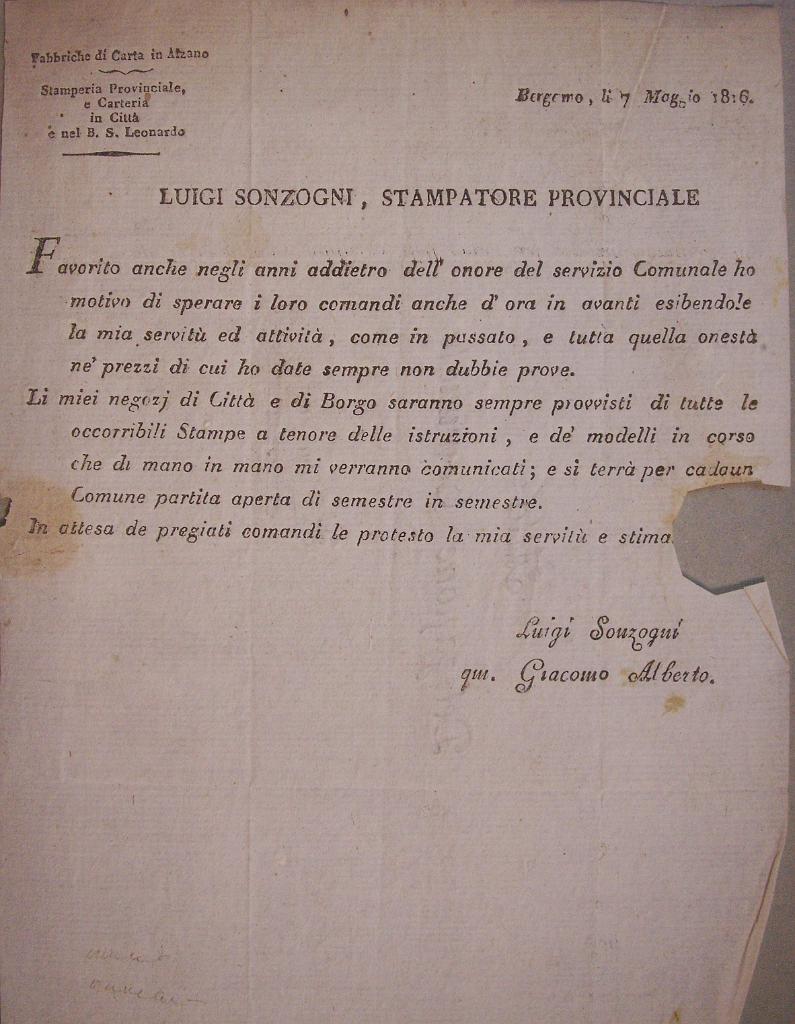 Fabbriche di Carta in Alzano
Stamperia Provinciale,
e Carteria
in Città
e nel B. S. Leonardo
Bergamo, li 7 Maggio 1816.
LUIGI SONZOGNI, STAMPATORE PROVINCIALE
Favorito anche negli anni addietro dell' onore del servizio Comunale ho
motivo di sperare i loro comandi anche d' ora in avanti esibendole
la mia servitù ed attività, come in passato, e tutta quella onestà
ne' prezzi di cui ho date sempre non dubbie prove.
Li miei negozj di Città e di Borgo saranno sempre provvisti di tutte le
occorribili Stampe a tenore delle istruzioni, e de' modelli in corso
che di mano in mano mi verranno comunicati; e si terrà per cadaun
Comune partita aperta di semestre in semestre.
In attesa de pregiati comandi le protesto la mia servitù e stima.
Luigi Sonzogni
qm. Giacomo Alberto.